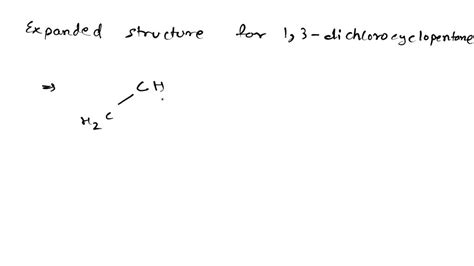 Expanded structure for 1,3-dichlorocyclopentane
⇒ CH
H2C